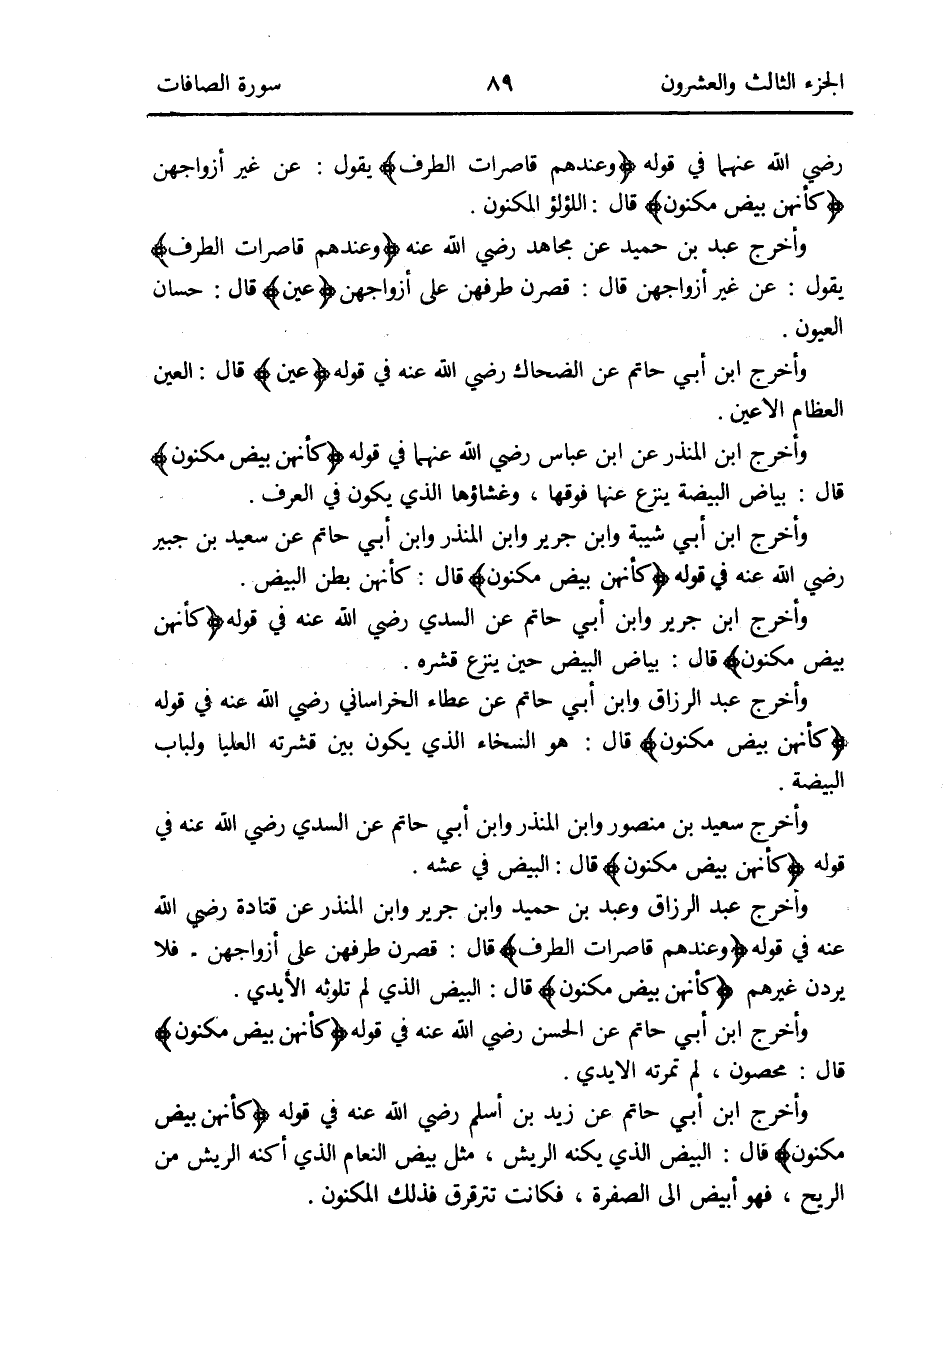 الجزء الثالث والعشرون ٨٩ سورة الصافات
رضي الله عنهما في قوله ﴿وعندهم قاصرات الطرف﴾ يقول : عن غير أزواجهن
﴿كأنهن بيض مكنون﴾ قال : اللؤلؤ المكنون .
وأخرج عبد بن حميد عن مجاهد رضي الله عنه ﴿وعندهم قاصرات الطرف﴾
يقول : عن غير أزواجهن قال : قصرن طرفهن على أزواجهن ﴿عين﴾ قال : حسان
العيون .
وأخرج ابن أبي حاتم عن الضحاك رضي الله عنه في قوله ﴿عين﴾ قال : العين
العظام الاعين .
وأخرج ابن المنذر عن ابن عباس رضي الله عنهما في قوله ﴿كأنهن بيض مكنون﴾
قال : بياض البيضة ينزع عنها فوقها ، وغشاؤها الذي يكون في العرف .
وأخرج ابن أبي شيبة وابن جرير وابن المنذر وابن أبي حاتم عن سعيد بن جبير
رضي الله عنه في قوله ﴿كأنهن بيض مكنون﴾ قال : كأنهن بطن البيض .
وأخرج ابن جرير وابن أبي حاتم عن السدي رضي الله عنه في قوله ﴿كأنهن
بيض مكنون﴾ قال : بياض البيض حين ينزع قشره .
وأخرج عبد الرزاق وابن أبي حاتم عن عطاء الخراساني رضي الله عنه في قوله
﴿كأنهن بيض مكنون﴾ قال : هو السخاء الذي يكون بين قشرته العليا ولباب
البيضة .
وأخرج سعيد بن منصور وابن المنذر وابن أبي حاتم عن السدي رضي الله عنه في
قوله ﴿كأنهن بيض مكنون﴾ قال : البيض في عشه .
وأخرج عبد الرزاق وعبد بن حميد وابن جرير وابن المنذر عن قتادة رضي الله
عنه في قوله ﴿وعندهم قاصرات الطرف﴾ قال : قصرن طرفهن على أزواجهن . فلا
يردن غيرهم ﴿كأنهن بيض مكنون﴾ قال : البيض الذي لم تلوثه الأيدي .
وأخرج ابن أبي حاتم عن الحسن رضي الله عنه في قوله ﴿كأنهن بيض مكنون﴾
قال : محصون ، لم تمرته الايدي .
وأخرج ابن أبي حاتم عن زيد بن أسلم رضي الله عنه في قوله ﴿كأنهن بيض
مكنون﴾ قال : البيض الذي يكنه الريش ، مثل بيض النعام الذي أكنه الريش من
الريح ، فهو أبيض الى الصفرة ، فكانت تترقرق فذلك المكنون .